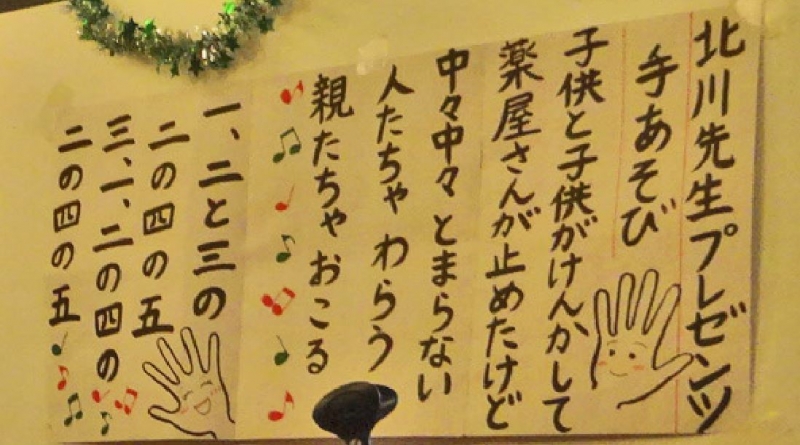 北川先生プレゼンツ
手あそび
子供と子供がけんかして
薬屋さんが止めたけど
中々中々とまらない
人たちゃわらう
親たちゃおこる
一、二と三の
二の四の五
三、一、二の四の
二の四の五